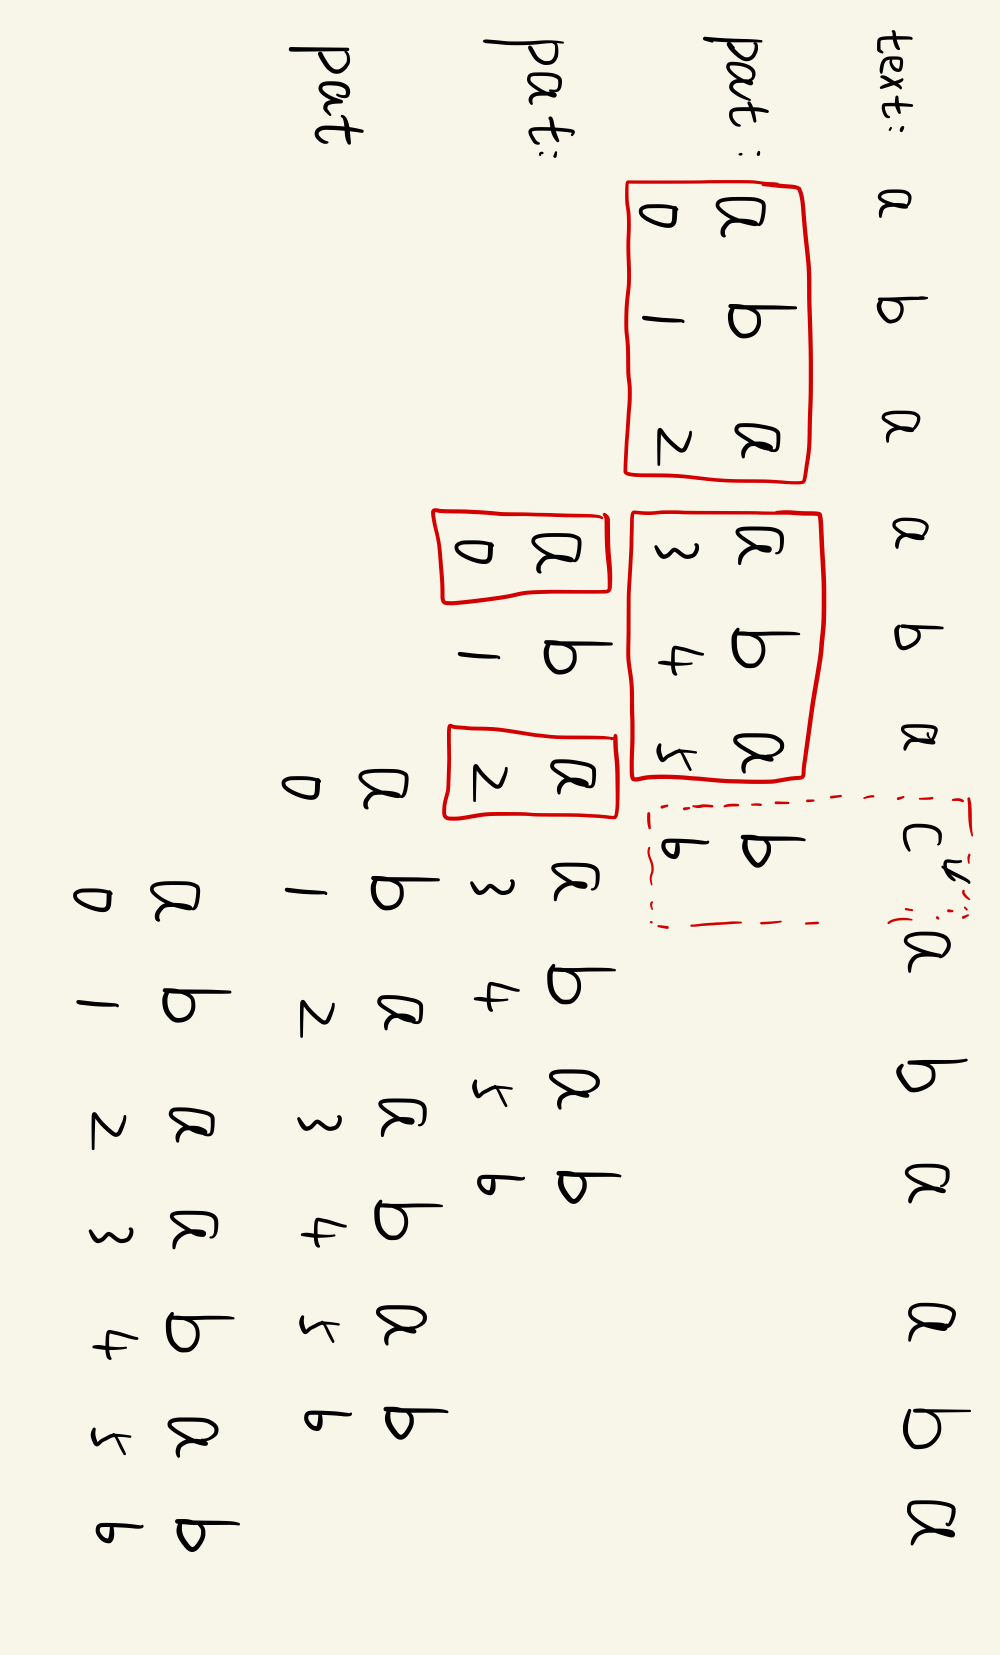 text: a b a a b a c a b a a b a
pat: a b a a b a b
0 1 2 3 4 5 6
pat: a b a a b a b
0 1 2 3 4 5 6
pat a b a a b a b
0 1 2 3 4 5 6
a b a a b a b
0 1 2 3 4 5 6